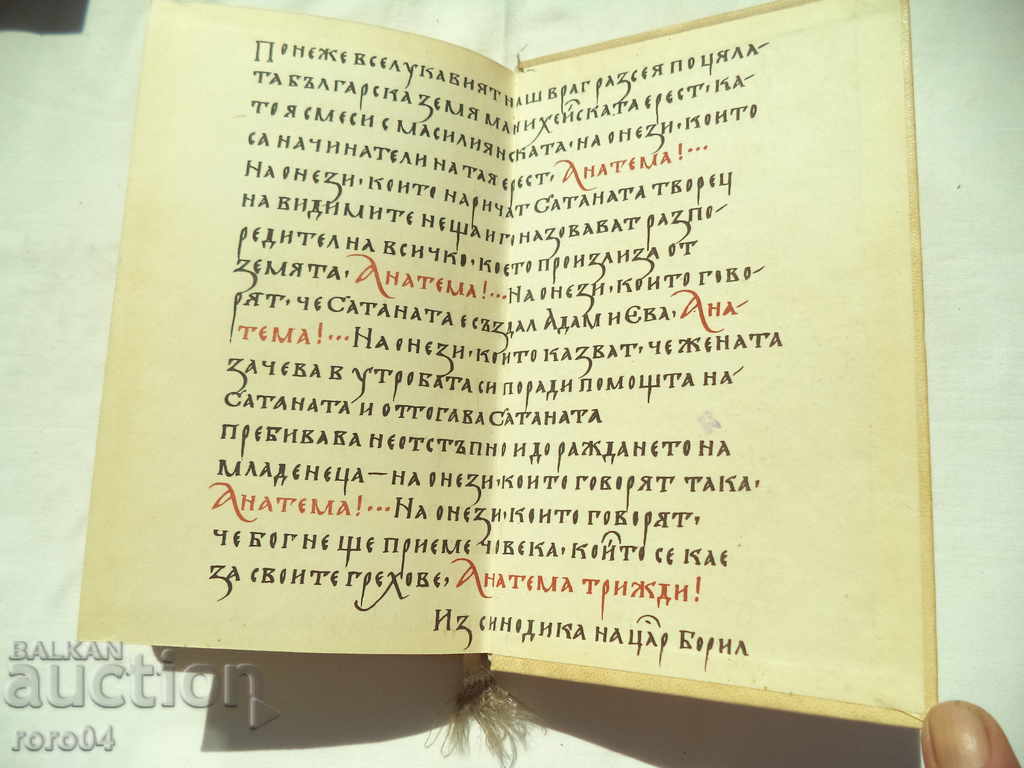 Понеже вселукавият наш враг разсея по цяла-
та българска земя манихейската ерест, ка-
то я смеси с масилиянската, на онези, които
са начинатели на тая ерест, Анатема!...
На онези, които наричат Сатаната творец
на видимите неща и го назовават разпо-
редител на всичко, което произлиза от
земята, Анатема!... На онези, които гово-
рят, че Сатаната е създал Адам и Ева, Ана-
тема!... На онези, които казват, че жената
зачева в утробата си поради помощта на
Сатаната и оттогава Сатаната
пребивава неотстъпно и до раждането на
младенеца — на онези, които говорят така,
Анатема!... На онези, които говорят,
че бог не ще приеме човека, който се кае
за своите грехове, Анатема трижди!
Из синодика на цар Борил
BALKAN
auction
roro04